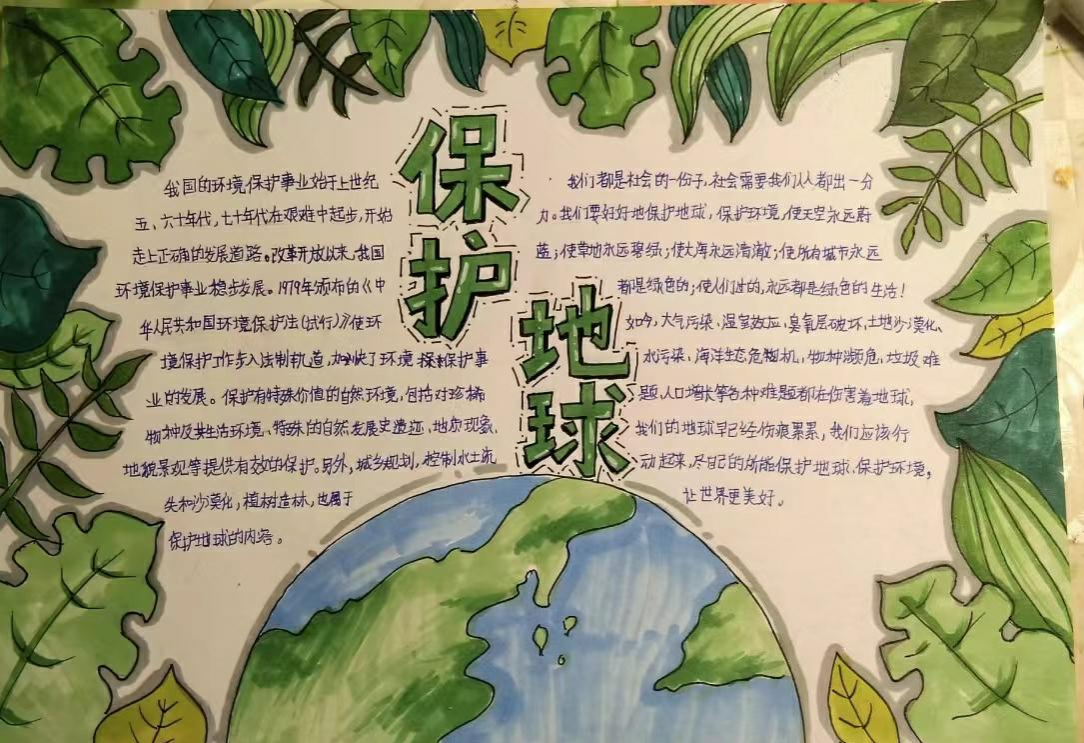 保护
地球
我国的环境保护事业始于上世纪
五、六十年代,七十年代在艰难中起步,开始
走上正确的发展道路。改革开放以来,我国
环境保护事业稳步发展。1979年颁布的《中
华人民共和国环境保护法(试行)》使环
境保护工作步入法制轨道,加快了环境保护事
业的发展。保护有特殊价值的自然环境,包括对珍稀
物种及其生活环境、特殊的自然发展史遗迹、地质现象、
地貌景观等提供有效的保护。另外,城乡规划,控制水土流
失和沙漠化,植树造林,也属于
保护地球的内容。
我们都是社会的一份子,社会需要我们人人都出一分
力。我们要好好地保护地球,保护环境,使天空永远蔚
蓝;使草地永远碧绿;使大海永远清澈;使所有城市永远
都是绿色的;使人们过的,永远都是绿色的生活!
如今,大气污染、温室效应、臭氧层破坏、土地沙漠化、
水污染、海洋生态危机,物种濒危,垃圾难
题,人口增长等各种难题都在伤害着地球,
我们的地球早已经伤痕累累,我们应该行
动起来,尽自己的所能保护地球、保护环境,
让世界更美好。